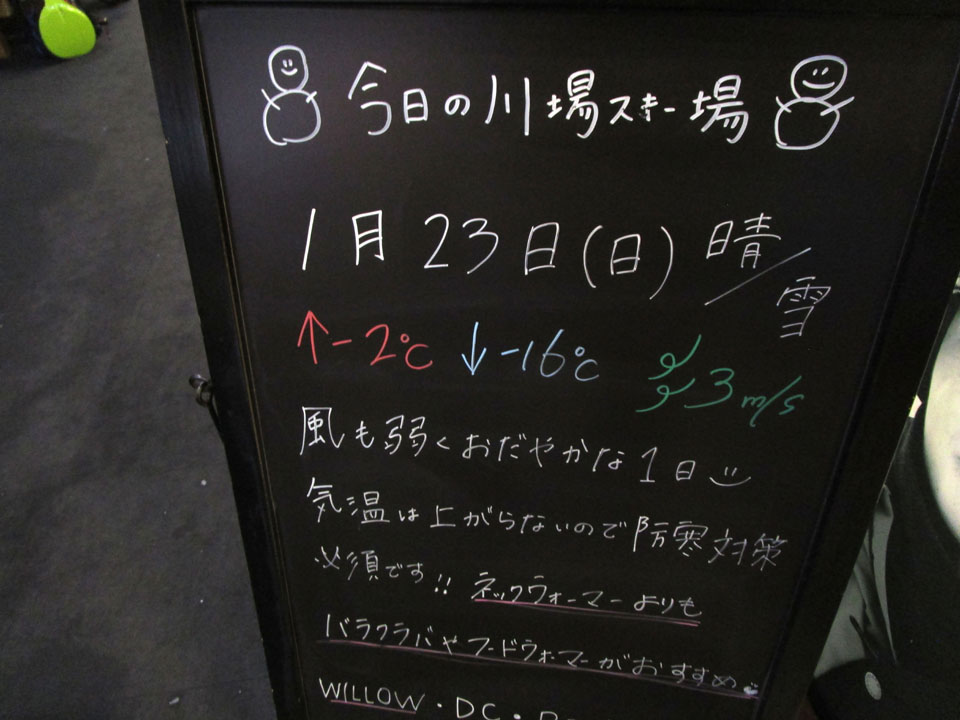 今日の川場スキー場
1月23日(日) 晴/雪
↑-2℃ ↓-16℃ 3m/s
風も弱くおだやかな1日
気温は上がらないので防寒対策
必須です!! ネックウォーマーよりも
バラクラバやフードウォーマーがおすすめ
WILLOW・DC・